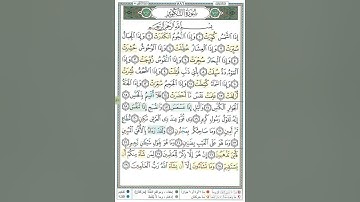 سُورَةُ التَّكْوِيرِ
بِسْمِ اللَّهِ الرَّحْمَٰنِ الرَّحِيمِ
إِذَا الشَّمْسُ كُوِّرَتْ ١ وَإِذَا النُّجُومُ انكَدَرَتْ ٢ وَإِذَا الْجِبَالُ
سُيِّرَتْ ٣ وَإِذَا الْعِشَارُ عُطِّلَتْ ٤ وَإِذَا الْوُحُوشُ حُشِرَتْ
٥ وَإِذَا الْبِحَارُ سُجِّرَتْ ٦ وَإِذَا النُّفُوسُ زُوِّجَتْ ٧ وَإِذَا
الْمَوْءُودَةُ سُئِلَتْ ٨ بِأَيِّ ذَنبٍ قُتِلَتْ ٩ وَإِذَا الصُّحُفُ
نُشِرَتْ ١٠ وَإِذَا السَّمَاءُ كُشِطَتْ ١١ وَإِذَا الْجَحِيمُ سُعِّرَتْ ١٢ وَإِذَا الْجَنَّةُ
أُزْلِفَتْ ١٣ عَلِمَتْ نَفْسٌ مَّا أَحْضَرَتْ ١٤ فَلَا أُقْسِمُ بِالْخُنَّسِ ١٥
الْجَوَارِ الْكُنَّسِ ١٦ وَاللَّيْلِ إِذَا عَسْعَسَ ١٧ وَالصُّبْحِ إِذَا تَنَفَّسَ ١٨
إِنَّهُ لَقَوْلُ رَسُولٍ كَرِيمٍ ١٩ ذِي قُوَّةٍ عِندَ ذِي الْعَرْشِ مَكِينٍ ٢٠ مُّطَاعٍ
ثَمَّ أَمِينٍ ٢١ وَمَا صَاحِبُكُم بِمَجْنُونٍ ٢٢ وَلَقَدْ رَآهُ بِالْأُفُقِ الْمُبِينِ
٢٣ وَمَا هُوَ عَلَى الْغَيْبِ بِضَنِينٍ ٢٤ وَمَا هُوَ بِقَوْلِ شَيْطَانٍ رَّجِيمٍ ٢٥
فَأَيْنَ تَذْهَبُونَ ٢٦ إِنْ هُوَ إِلَّا ذِكْرٌ لِّلْعَالَمِينَ ٢٧ لِمَن شَاءَ مِنكُمْ أَن
يَسْتَقِيمَ ٢٨ وَمَا تَشَاءُونَ إِلَّا أَن يَشَاءَ اللَّهُ رَبُّ الْعَالَمِينَ ٢٩